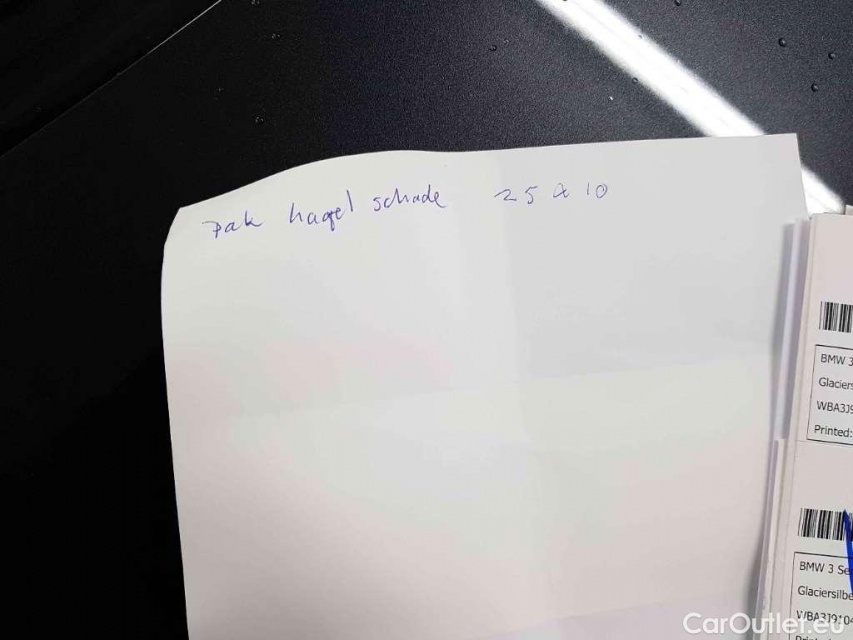 hagel schade 25 a 10
BMW 3
Glaciers
WBA3J9
Printed:
BMW 3 Se
Glaciersilbe
WBA3J9104
CarOutlet.eu